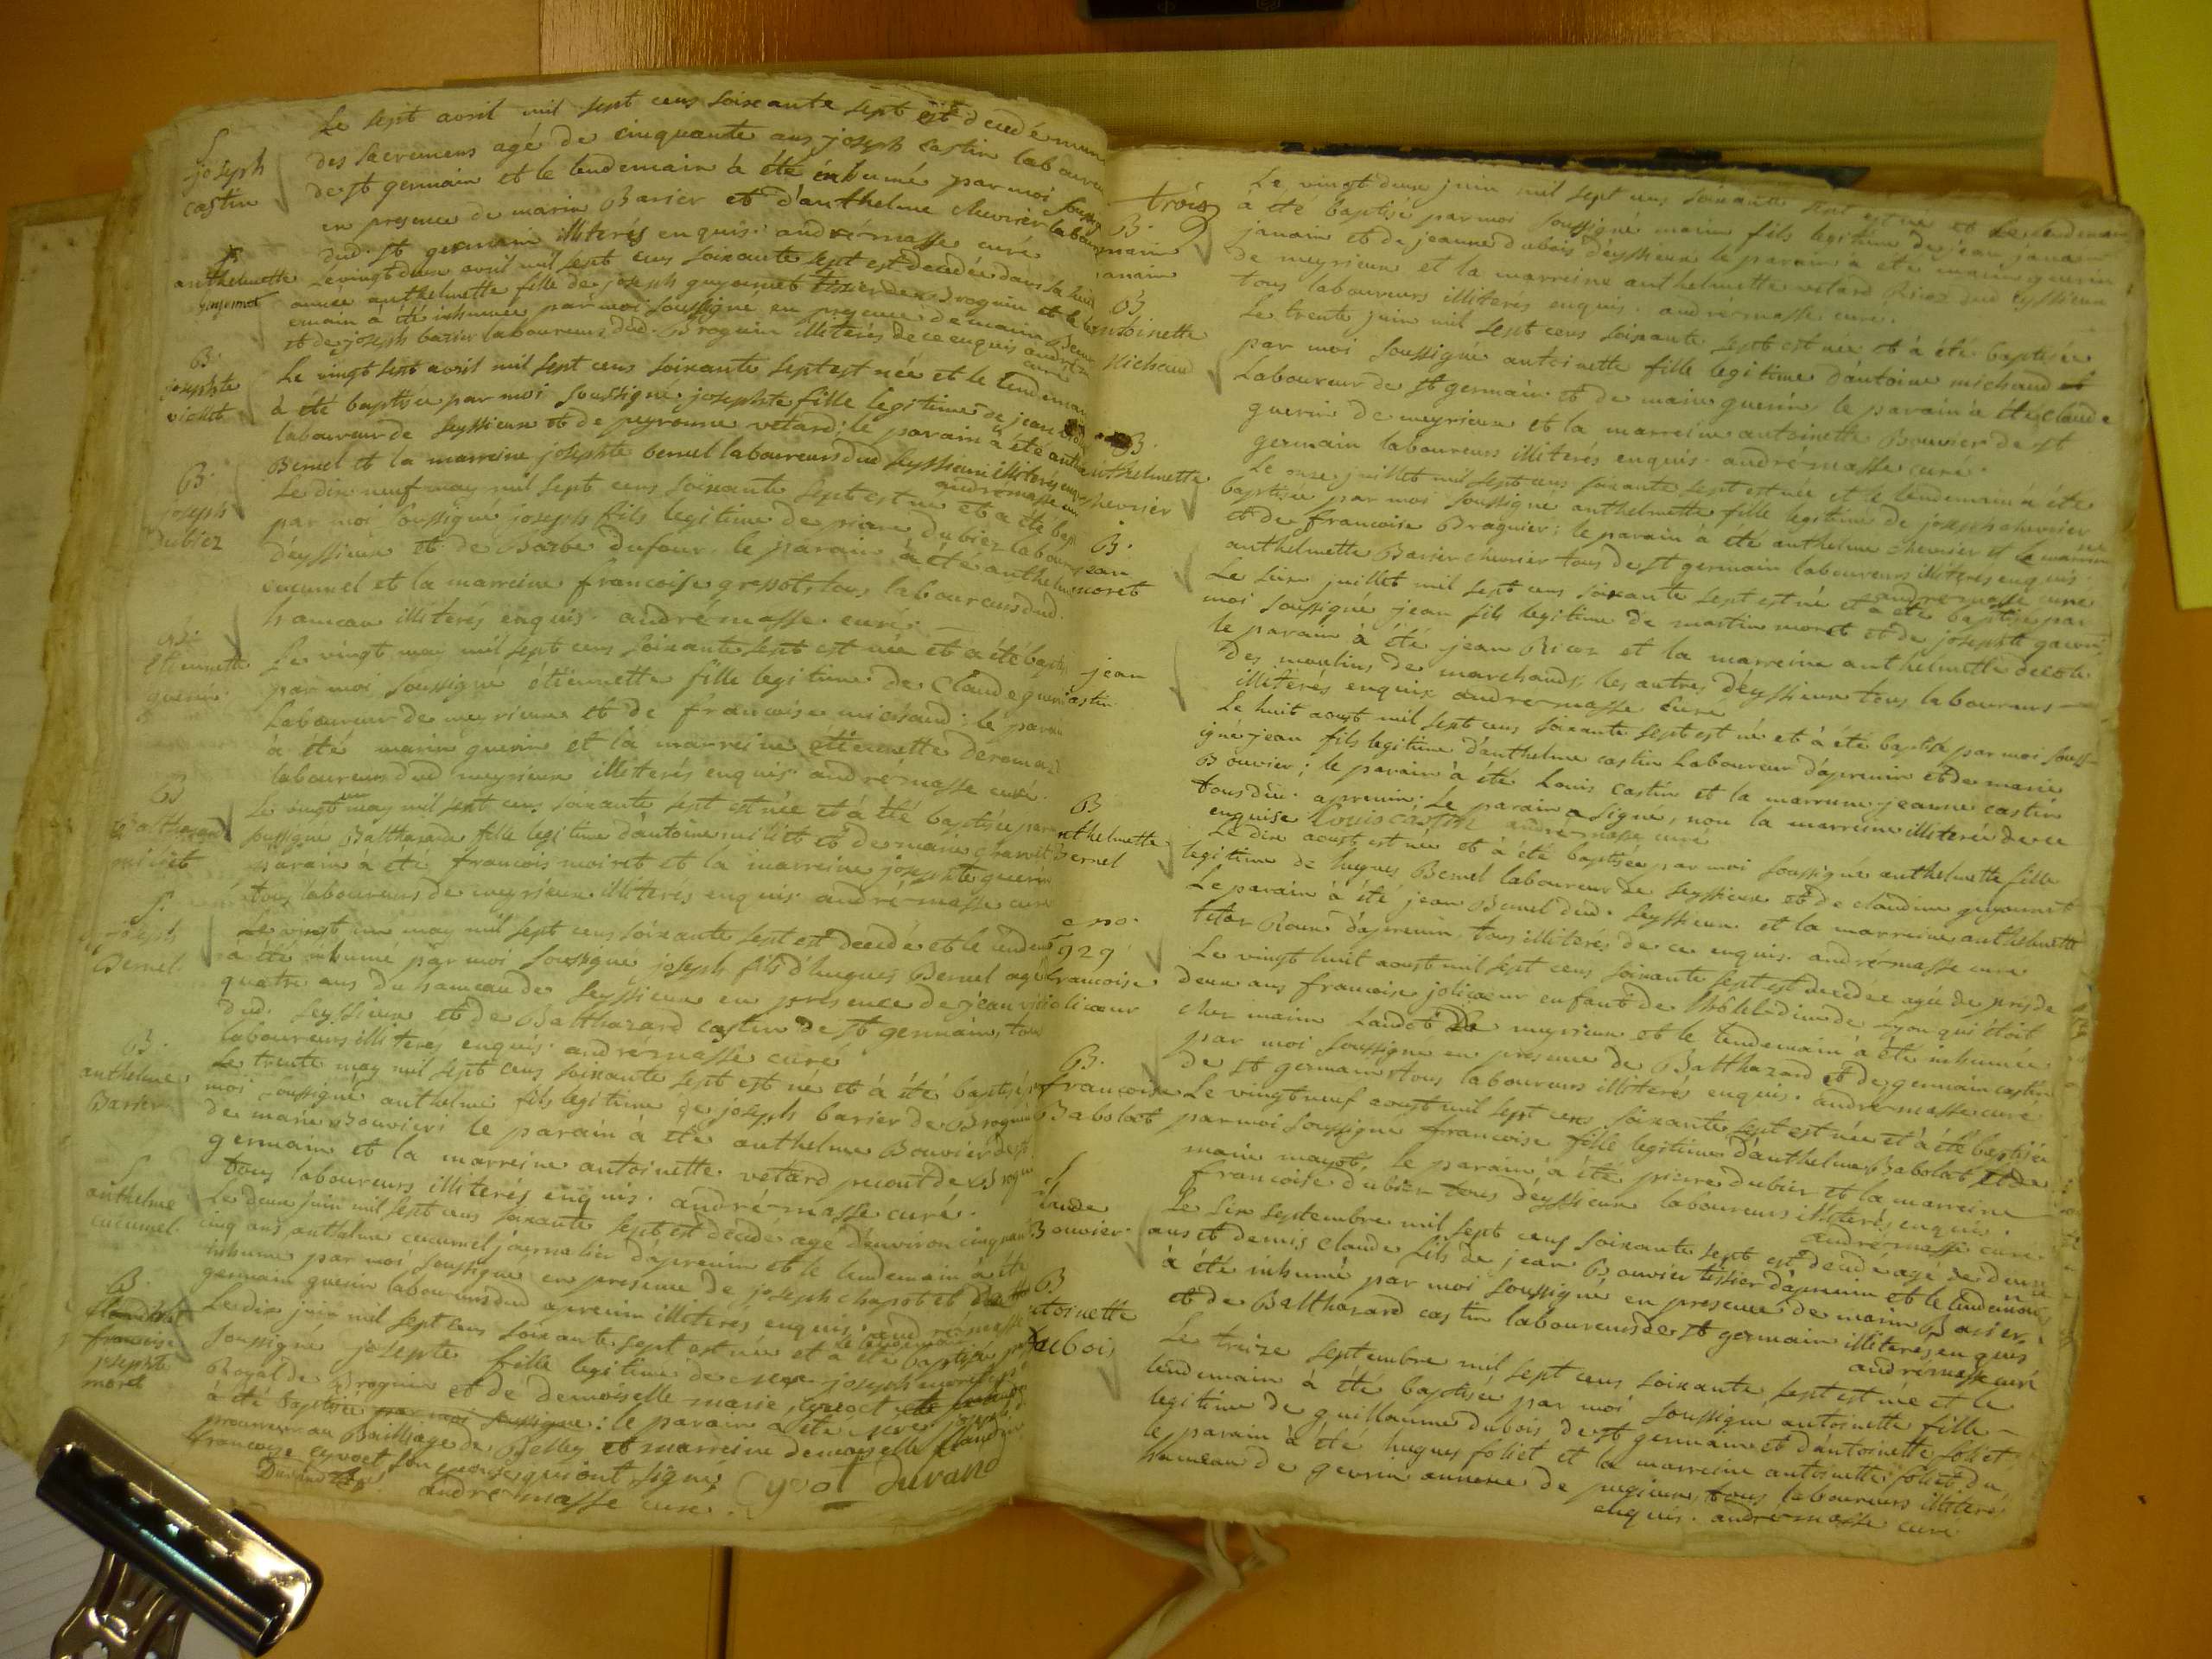 S
joseph
castin
Le sept avril mil sept cens soixante sept est decedé muni
des sacremens agé de cinquante ans joseph castin laboureur
de st germain et le lendemain à été inhumé par moi soussigné
en presence de marin Barier et d'anthelme chevrier labour
dud. st germain illiterés enquis. andré masse curé
anthelmette
guyonnet
Le vingt deux avril mil sept cens soixante sept est decedée dans sa huit
année anthelmette fille de joseph guyonnet tissier de Brognin et le len
emain à été inhumée par moi soussigné en presence de marin
et de joseph barier laboureurs dud. Brognin illiterés de ce enquis andré masse
curé
B.
josephte
violet
Le vingt sept avril mil sept cens soixante sept est née et le lendemain
à été baptisée par moi soussigné josephte fille legitime de jean
laboureur de seyssieux et de peyronne vetard; le parain à été
Bernel et la marreine josephte bernel laboureurs dud seyssieux illiterés enquis
andré masse curé
B.
joseph
dubiez
Le dix neuf may mil sept cens soixante sept est né et a été bap
par moi soussigné joseph fils legitime de piere dubiez labour
d'eyssieux et de Barbe dufour. le parain à été anthelme
cucumel et la marreine francoise grossot, tous laboureurs dud.
hameau illiterés enquis. andré masse. curé.
B.
Etiennette
guerin
Le vingt may mil sept cens soixante sept est née et a été baptis
par moi soussigné étiennette fille legitime de Claude guerin
Laboureur de meyrieux et de francoise michaud; le parain
à été marin guerin et la marreine etiennette
laboureurs dud meyrieux illiterés enquis andré masse curé.
B
Balthazarde
milliet
Le vingt un may mil sept cens soixante sept est née et à été baptisée par
soussigné Balthazarde fille legitime d'antoine milliet et de marie
parain a été francois moiret et la marreine josephte guerin
tous laboureurs de meyrieux illiterés enquis. andré masse curé
S.
joseph
Bernel
Le vingt un may mil sept cens soixante sept est decedé et le lendem
à été inhumé par moi soussigné joseph fils d'hugues Bernel agé
quatre ans du hameau de seyssieux en presence de jean
dud. seyssieux et de Balthazard castin de st germain, tous
laboureurs illiterés enquis. andré masse curé
B.
anthelme
Barier
Le trente may mil sept cens soixante sept est né et à été baptisé par
moi soussigné anthelme fils legitime de joseph barier de Brognin
de marie Bouvier; le parain à été anthelme Bouvier de st
germain et la marreine antoinette vetard
tous laboureurs illiterés enquis. andré masse curé.
S
anthelme
cucumel.
Le deux juin mil sept cens soixante sept est decedé agé d'environ cinquan
cinq ans anthelme cucumel journalier d'apremin et le lendemain à été
inhumé par moi soussigné en presence de joseph chapot et
germain guerin laboureurs dud apremin illiterés enquis. andré masse
B.
francoise
josephte
moret
Le dix juin mil sept cens soixante sept est née et
soussigné josephte fille legitime de joseph moret
Royal de Brognin et de demoiselle marie cyvoct
à été baptisée par moi soussigné: le parain a été
procureur au Bailliage de Belley et marreine demoiselle
francoise cyvoct son epouse qui ont signé Cyvoct Durand
andré masse curé.
trois
B.
marin
janain
Le vingt deux juin mil sept cens soixante sept est né et le lendemain
à été baptisé par moi soussigné marin fils legitime de jean janain
janain et de jeanne dubois d'eyssieux le parain à été marin guerin
de meyrieux et la marreine anthelmette vetard Ricoz dud eyssieux
tous laboureurs illiterés enquis. andré masse curé.
B
antoinette
Michaud
Le trente juin mil sept cens soixante sept est née et à été baptisée
par moi soussigné antoinette fille legitime d'antoine michaud et
Laboureur de st germain et de marie guerin, le parain à été claude
guerin de meyrieux et la marreine antoinette Bouvier de st
germain laboureurs illiterés enquis. andré masse curé.
B.
anthelmette
chevrier
Le onze juillet mil sept cens soixante sept est née et le lendemain à été
baptisée par moi soussigné anthelmette fille legitime de joseph chevrier
et de francoise Bragnier; le parain à été anthelme chevrier et la marreine
anthelmette Barier chevrier tous de st germain laboureurs illiterés enquis
andré masse curé
B.
jean
moret
Le seize juillet mil sept cens soixante sept est né et a été baptisé par
moi soussigné jean fils legitime de martin moret et de josephte
le parain à été jean Ricoz et la marreine anthelmette
des moulins de marchands, les autres d'eyssieux tous laboureurs
illiterés enquis andré masse curé
jean
castin
Le huit aoust mil sept cens soixante sept est né et à été baptisé par moi souss-
igné jean fils legitime d'anthelme castin Laboureur d'apremin et de marie
Bouvier; le parain à été Louis castin et la marreine jeanne castin
tous deux apremin; Le parain a signé, non la marreine illiterée de ce
enquise Louis castin andré masse curé
B
anthelmette
Bernel
Le dix aoust est née et à été baptisée par moi soussigné anthelmette fille
legitime de hugues Bernel laboureur de seyssieux et de claudine guyonnet
Le parain à été jean Bernel dud. seyssieux et la marreine anthelmette
Roux d'apremin, tous illiterés de ce enquis. andré masse curé
no.
929
francoise
jolicoeur
Le vingt huit aoust mil sept cens soixante sept est decedée agée de près de
deux ans francoise jolicoeur enfant de l'hôtel-dieu de Lyon qui étoit
chez marin Landot de meyrieux et le lendemain à été inhumée
par moi soussigné en presence de Balthazard et de germain castin
de st germain tous laboureurs illiterés enquis. andré masse curé
B.
francoise
Babolat
Le vingt neuf aoust mil sept cens soixante sept est née et à été baptisée
par moi soussigné francoise fille legitime d'anthelme Babolat et de
marie mayot. le parain à été pierre dubier et la marreine
francoise dubier tous d'eyssieux laboureurs illiterés enquis.
andré masse curé
S
claude
Bouvier
Le six septembre mil sept cens soixante sept est decedé agé de deux
ans et demis claude fils de jean Bouvier tissier d'apremin et le lendemain
à été inhumé par moi soussigné en presence de marin Barier,
et de Balthazard castin laboureurs de st germain illiterés enquis
andré masse curé
B
antoinette
dubois
Le treize septembre mil sept cens soixante sept est née et le
lendemain à été baptisée par moi soussigné antoinette fille
legitime de guillaume dubois de st germain et d'antoinette foliet
le parain à été hugues foliet et la marreine antoinette foliet du
hameau de gevrin annexe de pugieux, tous laboureurs illiterés
enquis. andré masse curé